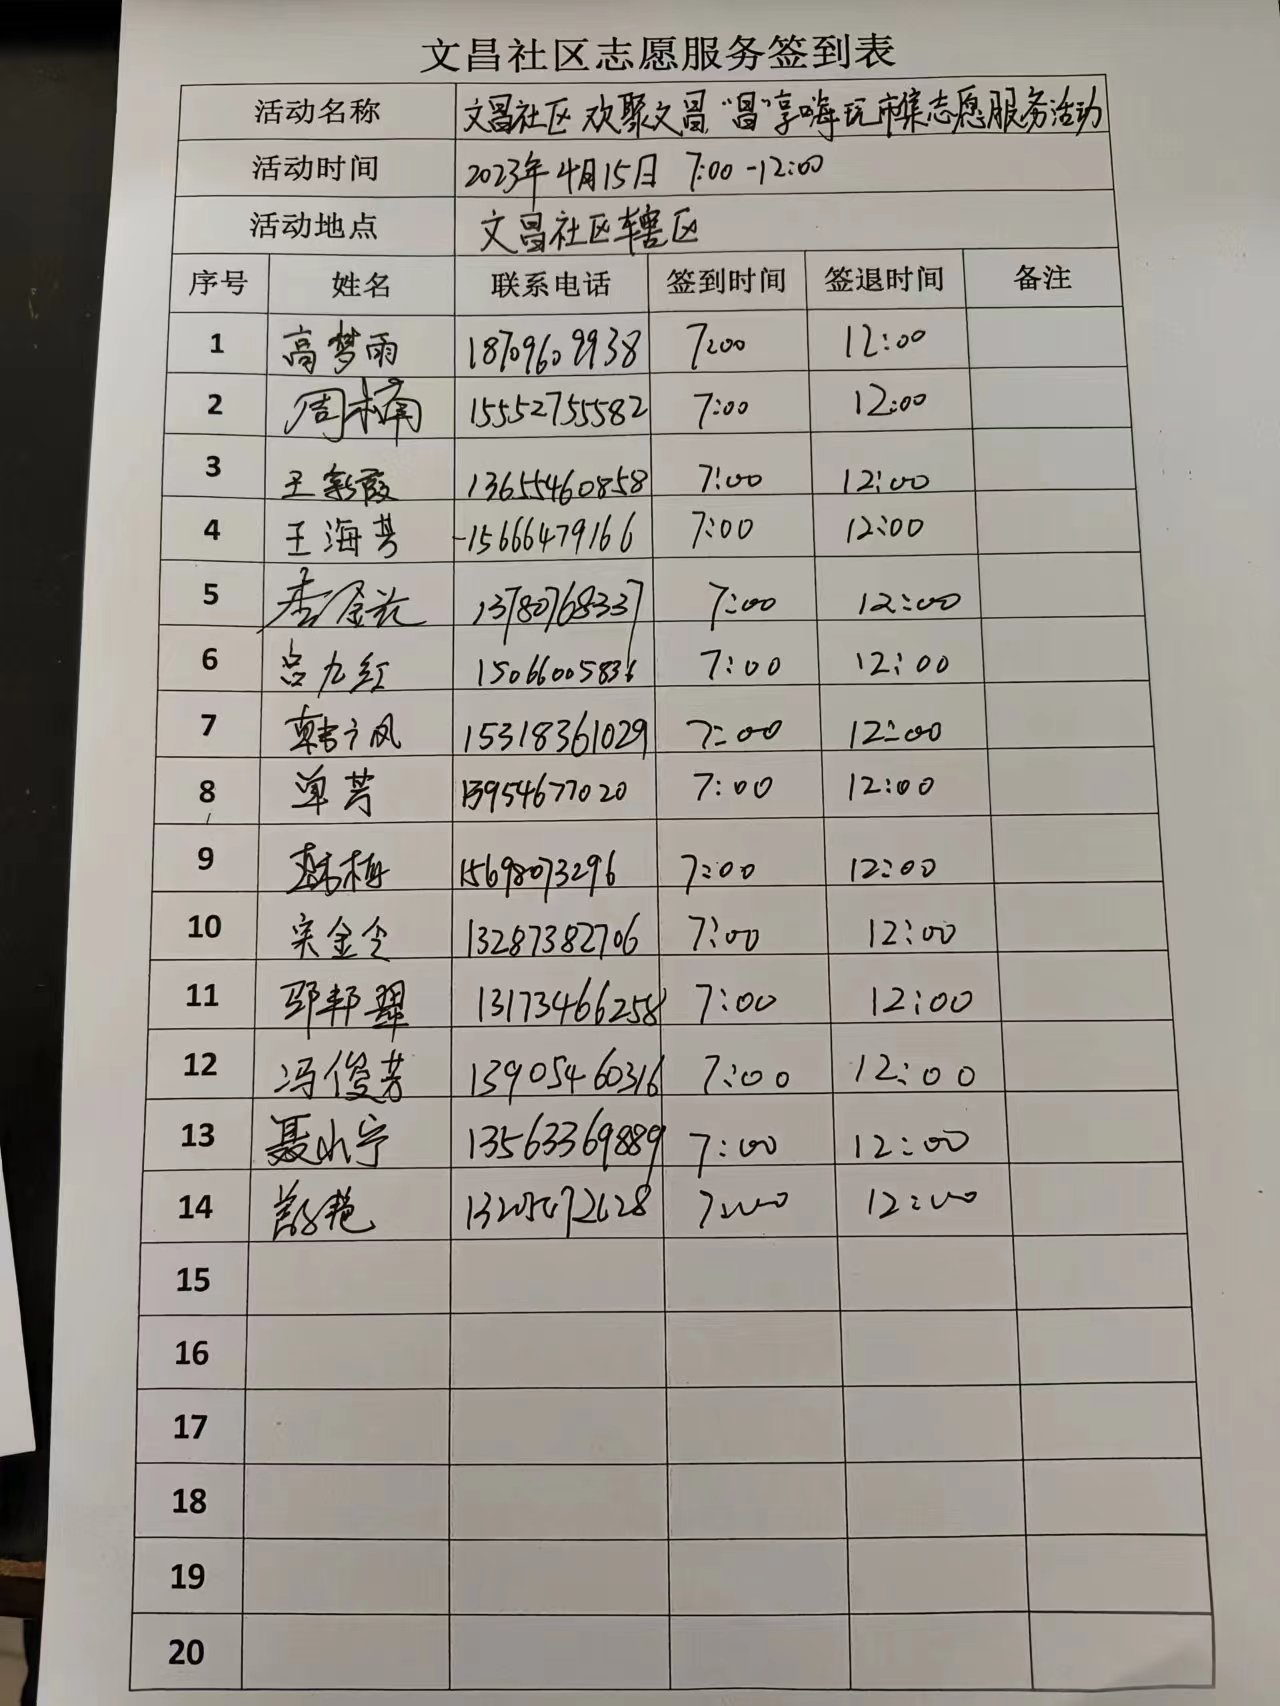 文昌社区志愿服务签到表
活动名称 文昌社区 欢聚文昌 "昌"享嗨玩市集志愿服务活动
活动时间 2023年4月15日 7:00-12:00
活动地点 文昌社区辖区
序号 姓名 联系电话 签到时间 签退时间 备注
1 高梦雨 18709609938 7:00 12:00
2 周楠 15552755582 7:00 12:00
3 王新霞 13655460858 7:00 12:00
4 王海芳 15666479166 7:00 12:00
5 李金兰 13780768337 7:00 12:00
6 吕九红 15066005836 7:00 12:00
7 韩广凤 15318361029 7:00 12:00
8 单芳 13954677020 7:00 12:00
9 韩梅 15698073296 7:00 12:00
10 宋金令 13287382706 7:00 12:00
11 邵邦翠 13173466258 7:00 12:00
12 冯俊芳 13905460316 7:00 12:00
13 聂小宁 13563369889 7:00 12:00
14 7:00 12:00
15
16
17
18
19
20